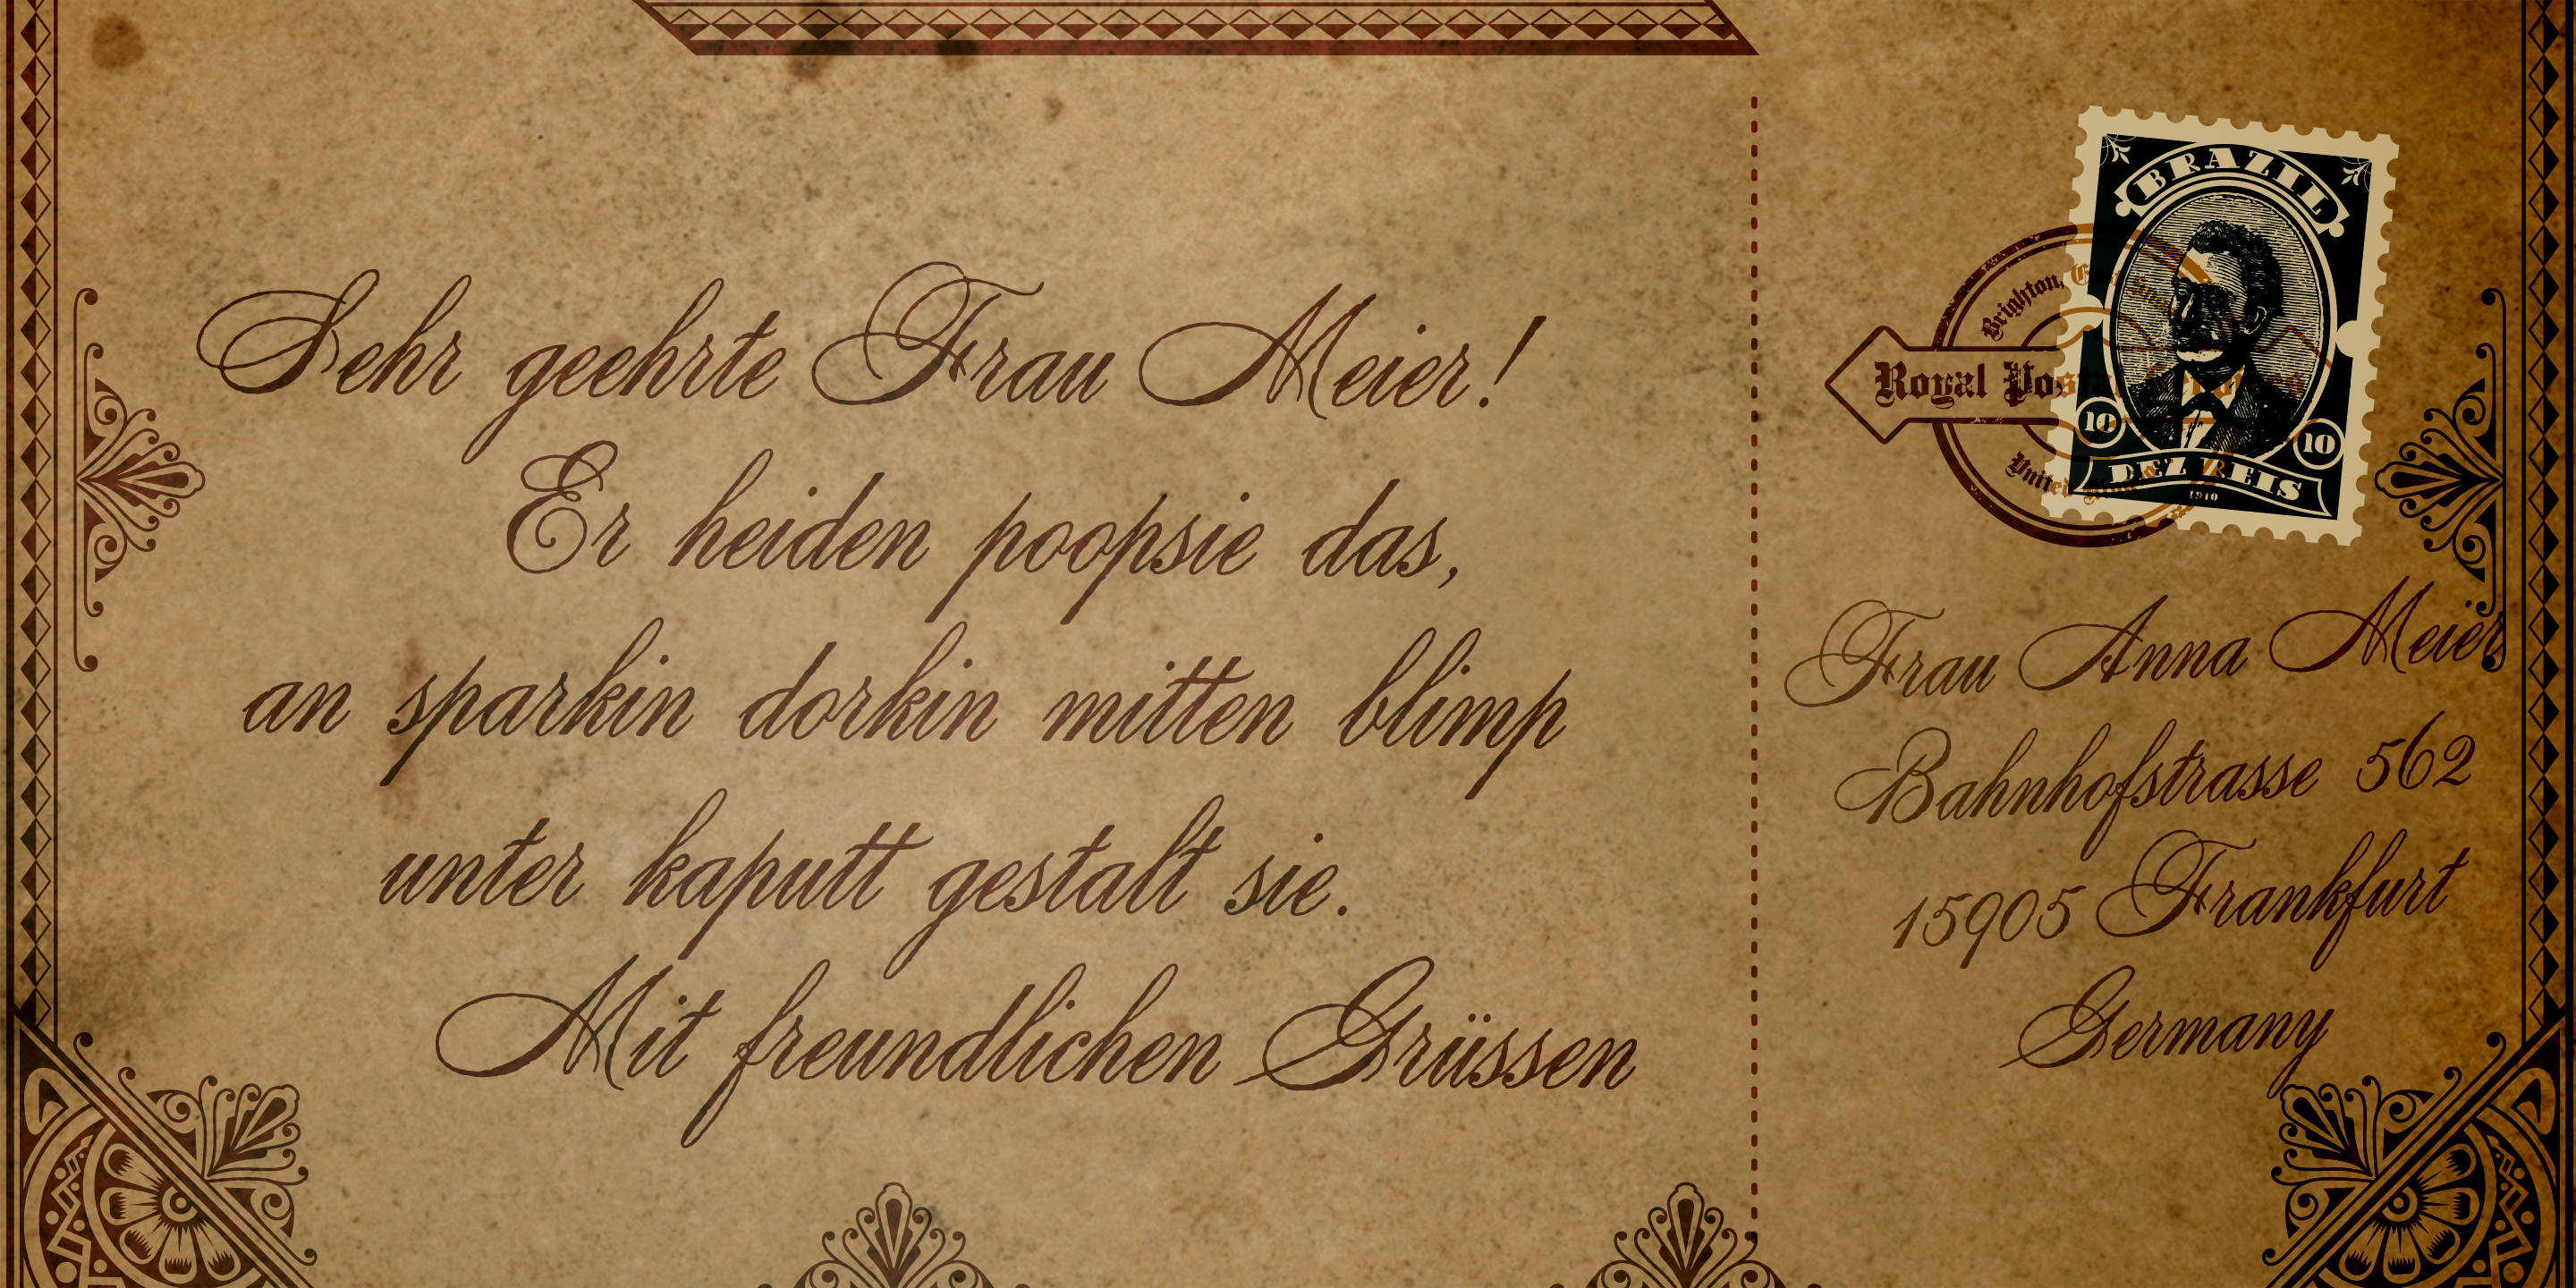 Sehr geehrte Frau Meier!
Er heiden poopsie das,
an sparkin dorkin mitten blimp
unter kaputt gestalt sie.
Mit freundlichen Grüssen
BRAZIL
Brighton,
Royal Postal
United
10
10
DEZ REIS
1910
Frau Anna Meier
Bahnhofstrasse 562
15905 Frankfurt
Germany